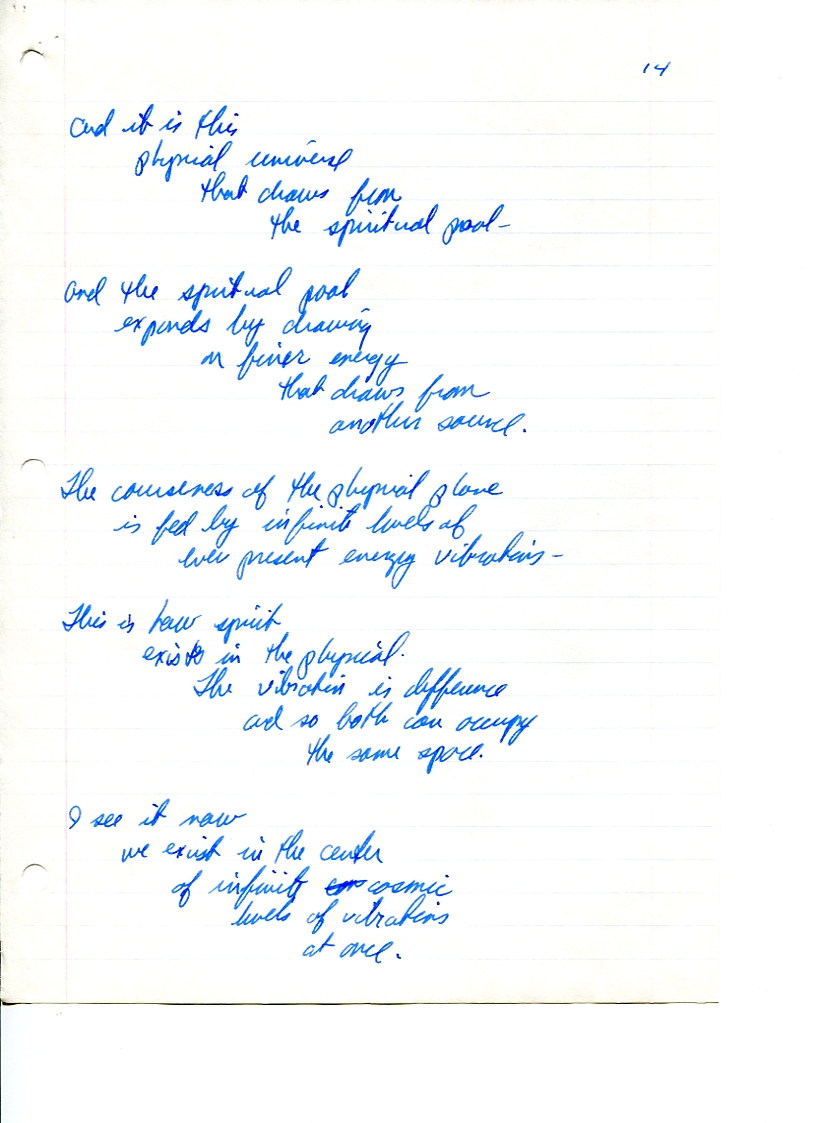 14
and it is this
physical universe
that draws from
the spiritual pool-
and the spiritual pool
expands by drawing
on finer energy
that draws from
another source.
The courseness of the physical plane
is fed by infinite levels of
ever present energy vibrations-
This is how spirit
exists in the physical.
The vibration is difference
and so both can occupy
the same space.
I see it now
we exist in the center
of infinity cosmic
levels of vibrations
at once.